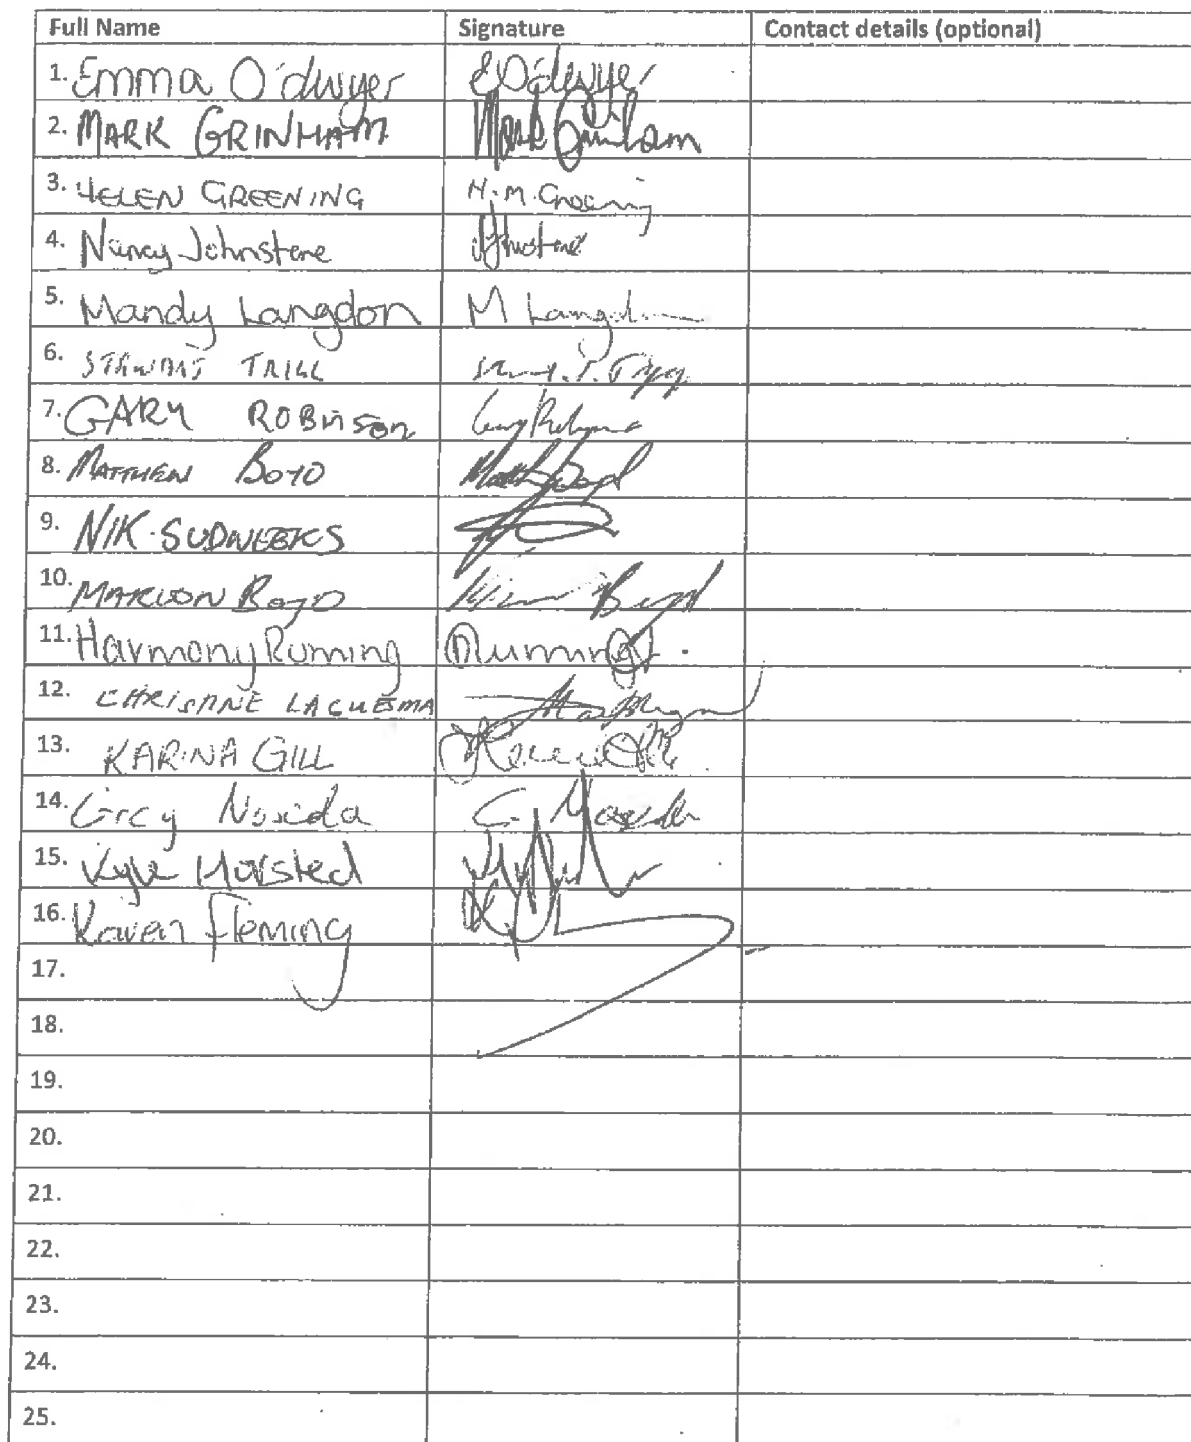 Full Name Signature Contact details (optional)
1. Emma O'dwyer EOdwyer
2. MARK GRINHAM Mark Grinham
3. HELEN GREENING H.M. Greening
4. Nancy Johnstone
5. Mandy Langdon M Langdon
6. TRILL
7. GARY ROBINSON
8. MATTHEW BOYD
9. NIK SUDWEEKS
10. BOYD
11. Harmony Ruming Ruming
12. LACUESMA
13. KARINA GILL
14. Noseda
15. Kyle Horsted
16. Karen Fleming
17.
18.
19.
20.
21.
22.
23.
24.
25.